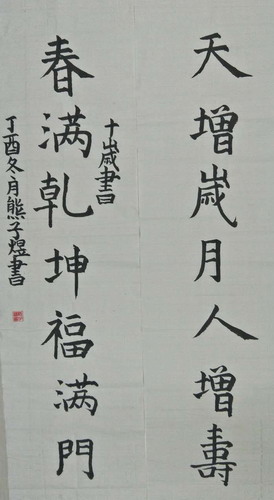 天增歲月人增壽
春满乾坤福满門
十歲書
丁酉冬月熊子煜書